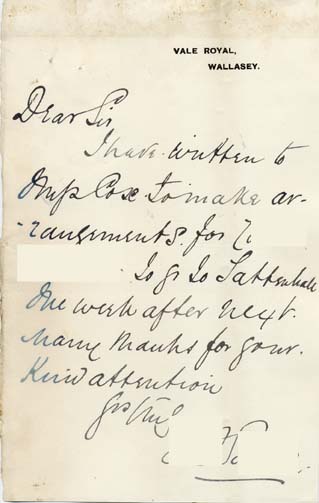 VALE ROYAL,
WALLASEY.
Dear Sir
I have written to
Miss Cox to make ar-
rangements for
to go to Tattenhall
the week after next.
Many thanks for your
Kind attention